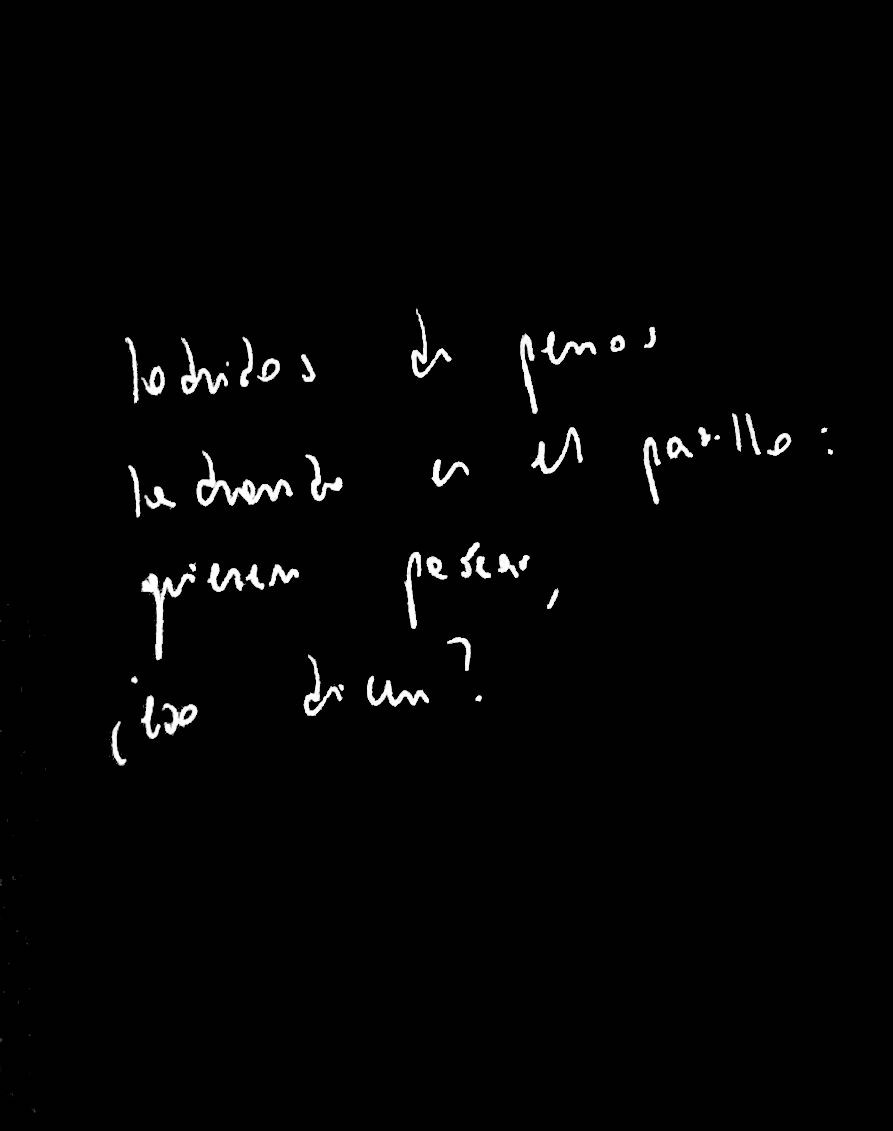 ladridos de perros
ladrando en el pasillo:
quieren pasear,
¿eso dicen?